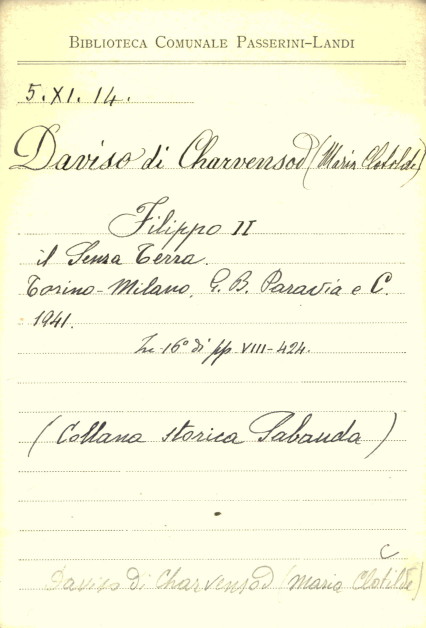 BIBLIOTECA COMUNALE PASSERINI-LANDI
5.XI.14.
Daviso di Charvensod (Maria Clotilde)
Filippo II
il Senza Terra.
Torino-Milano, G. B. Paravia e C.
1941.
In 16° di pp. VIII-424.
(Collana storica Sabauda)
C
Daviso di Charvensod (Maria Clotilde)